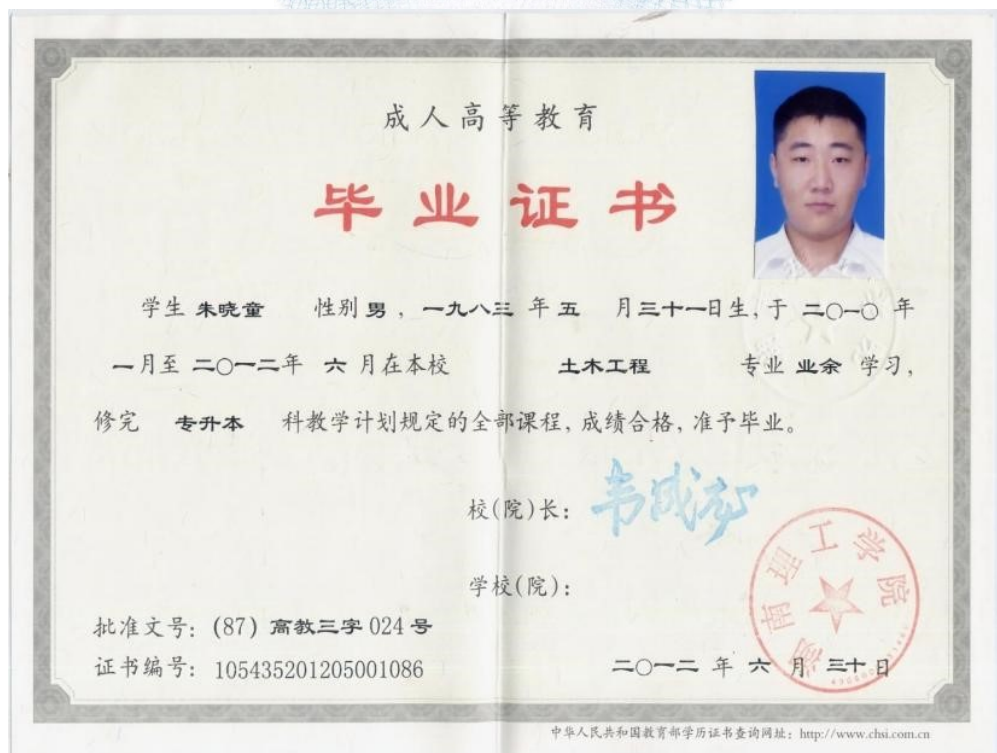 成人高等教育
毕业证书
学生 朱晓童 性别 男，一九八三 年 五 月 三十一 日生，于 二〇一〇 年
一 月至 二〇一二 年 六 月在本校 土木工程 专业 业余 学习，
修完 专升本 科教学计划规定的全部课程，成绩合格，准予毕业。
校(院)长：
学校(院)：
湖南理工学院
批准文号：(87) 高教三字 024 号
证书编号：105435201205001086
二〇一二 年 六 月 三十 日
中华人民共和国教育部学历证书查询网址：http://www.chsi.com.cn